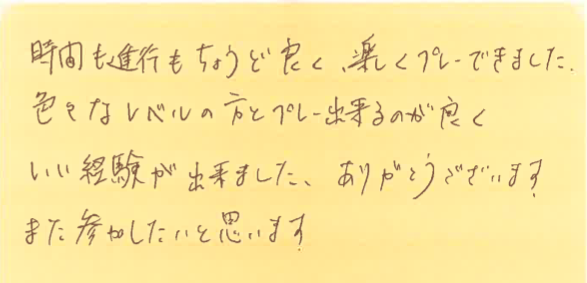 時間も進行もちょうど良く、楽しくプレーできました.
色々なレベルの方とプレー出来るのが良く
いい経験が出来ました、ありがとうございます
また参加したいと思います